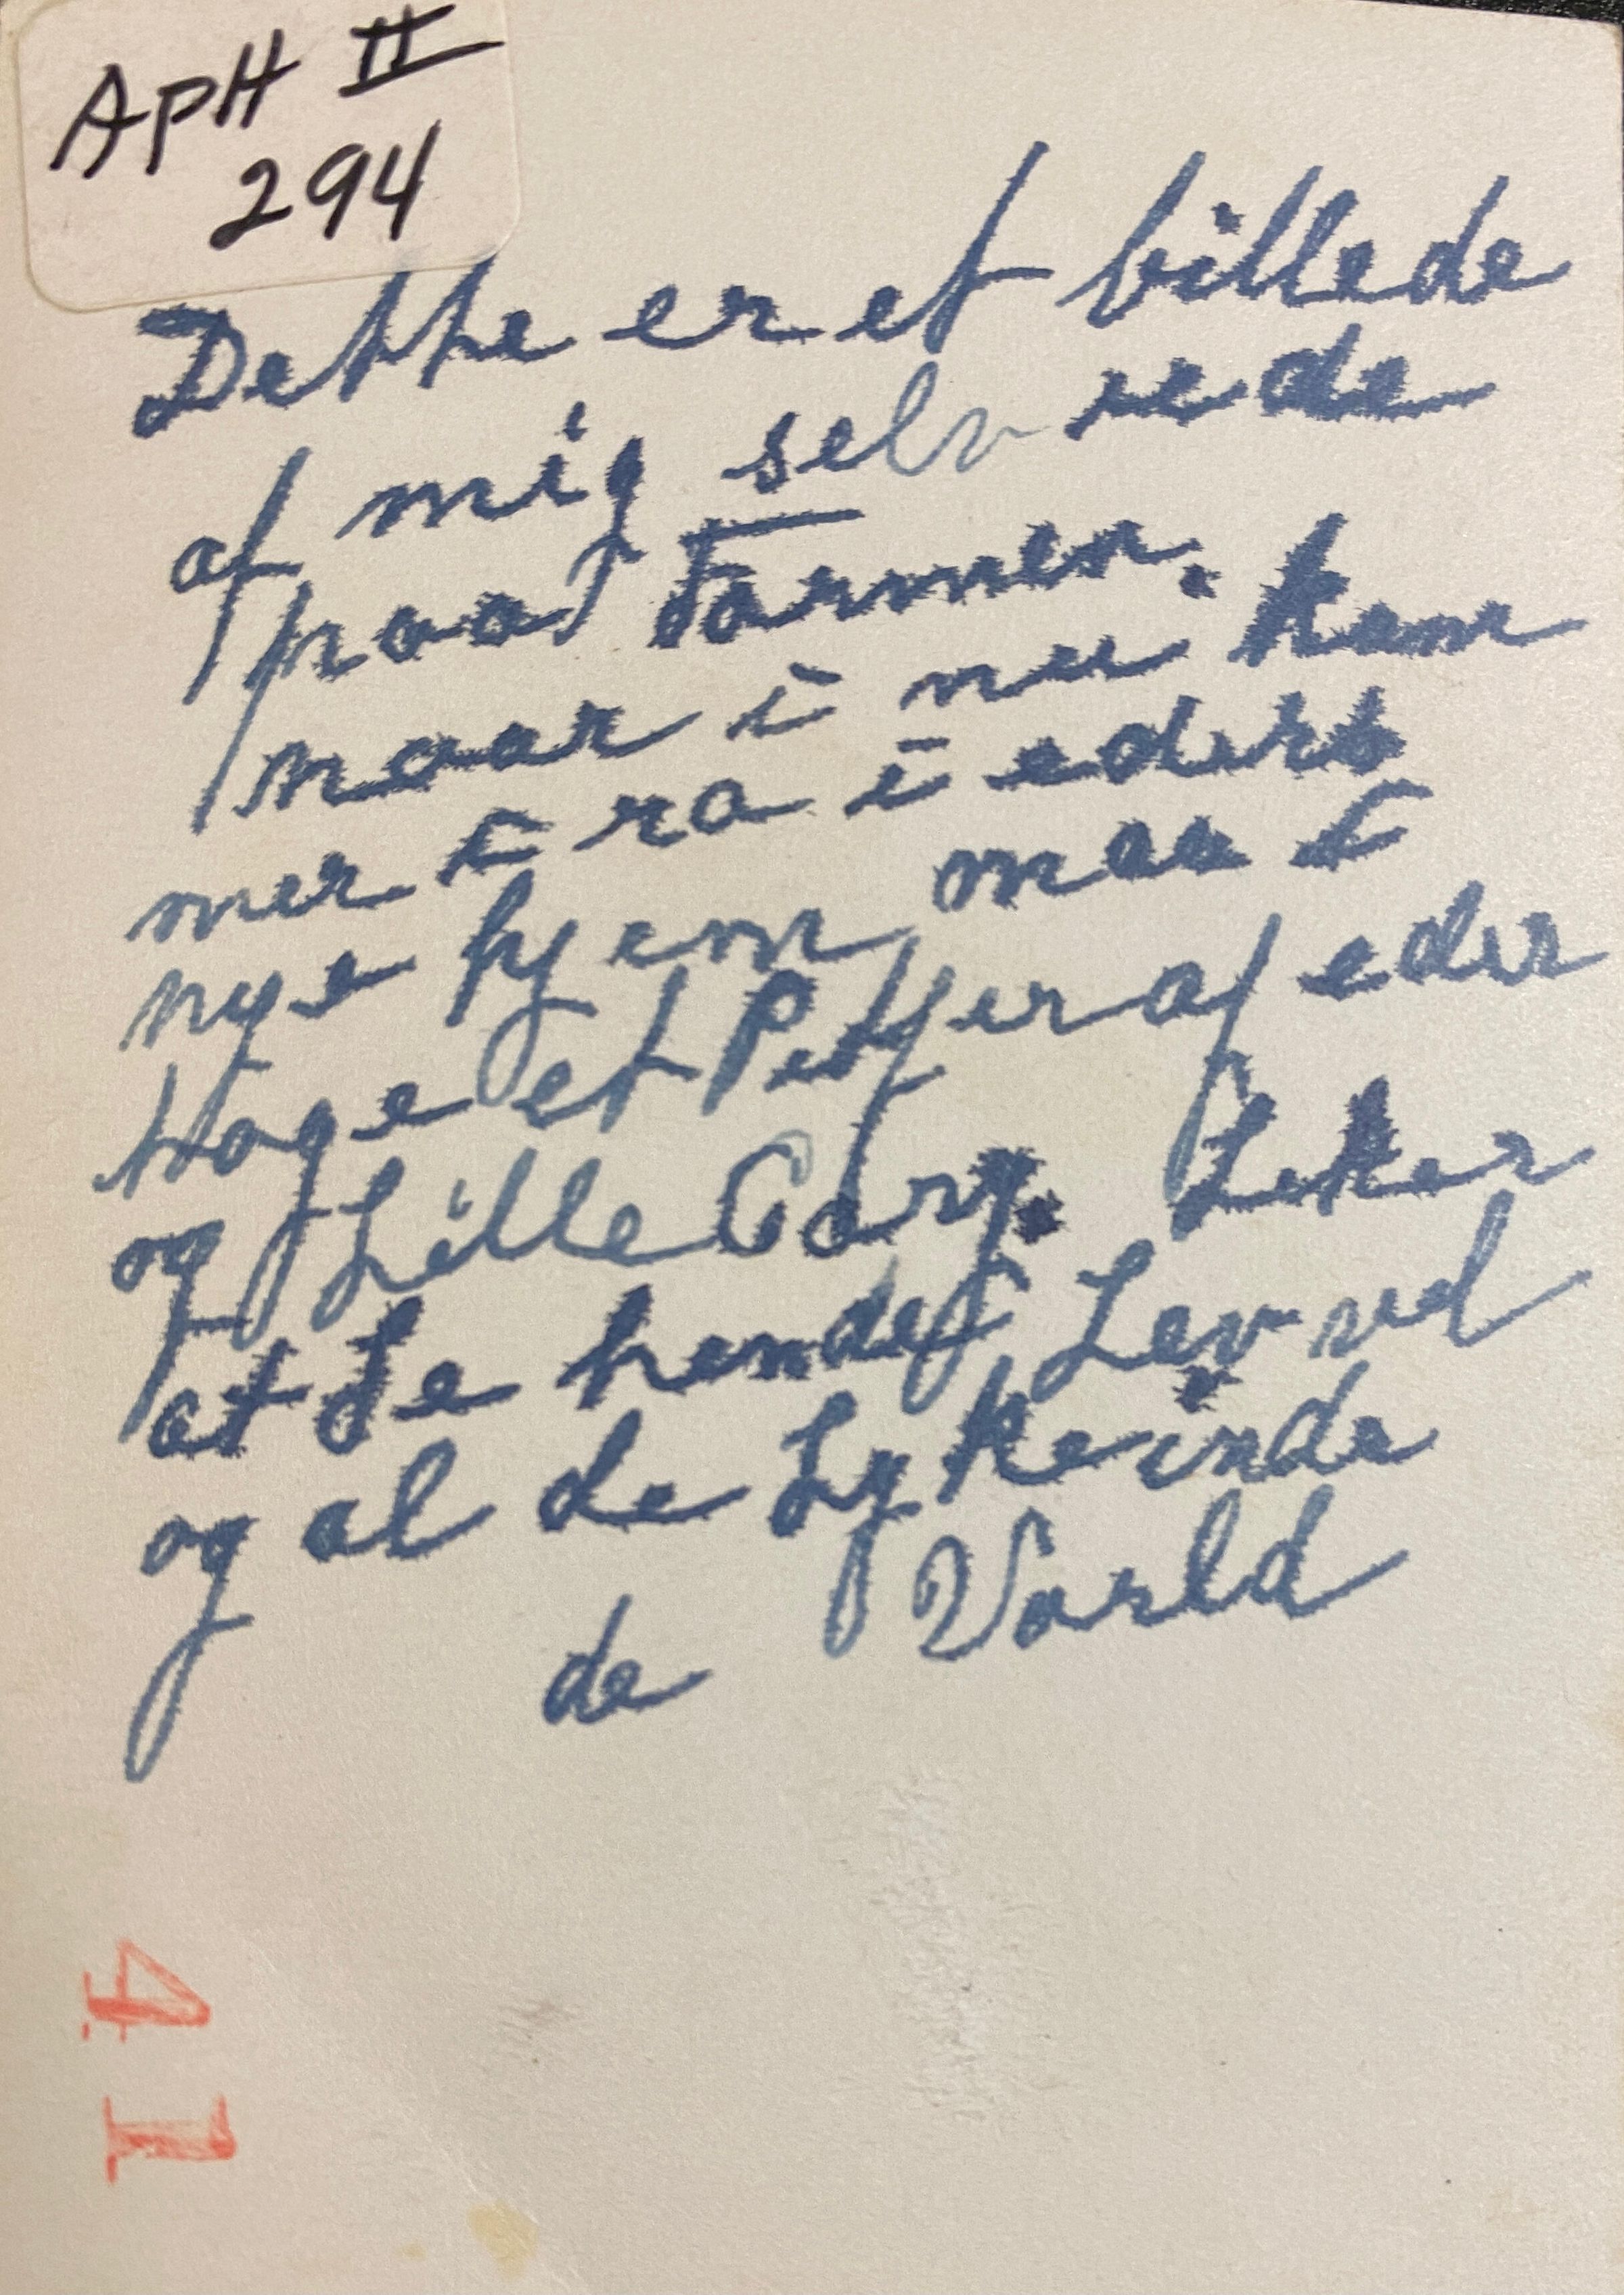 APH II
294
Dette er et billede
af mig selv nede
paa Farmen.
naar i nu kom
mer i ra i eders
nye hjem maa i
tage et Pitjer af eder
og Lille Gary. Leker
at se hendes Lev vel
og al de Lykeinde
de Varld
41